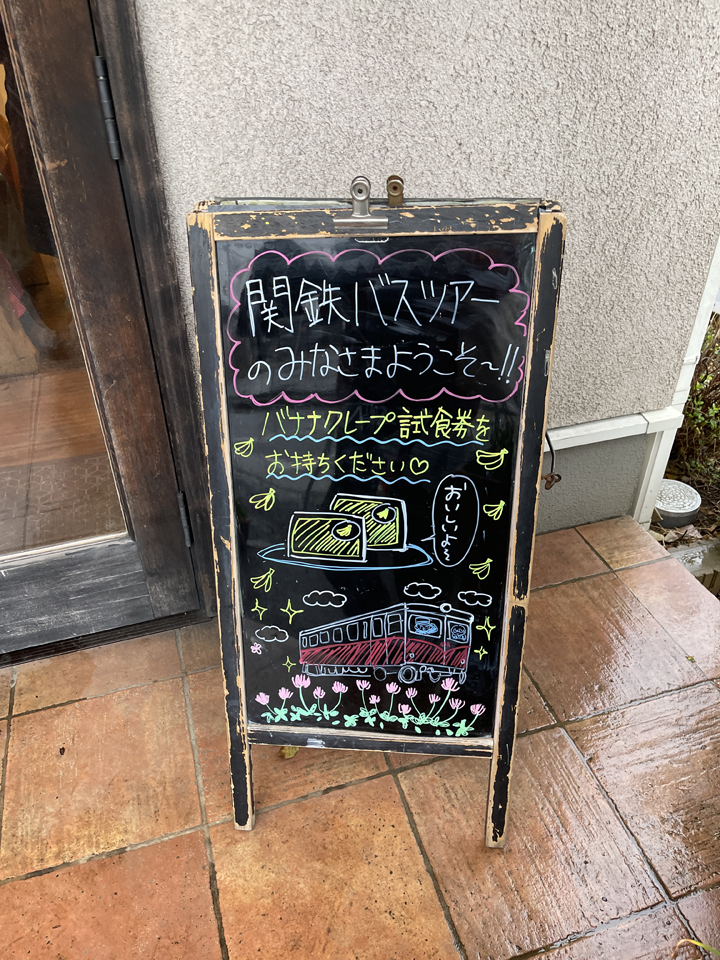 関鉄バスツアー
のみなさまようこそ〜!!
バナナクレープ試食券を
お持ちください♡
おいしいよ〜